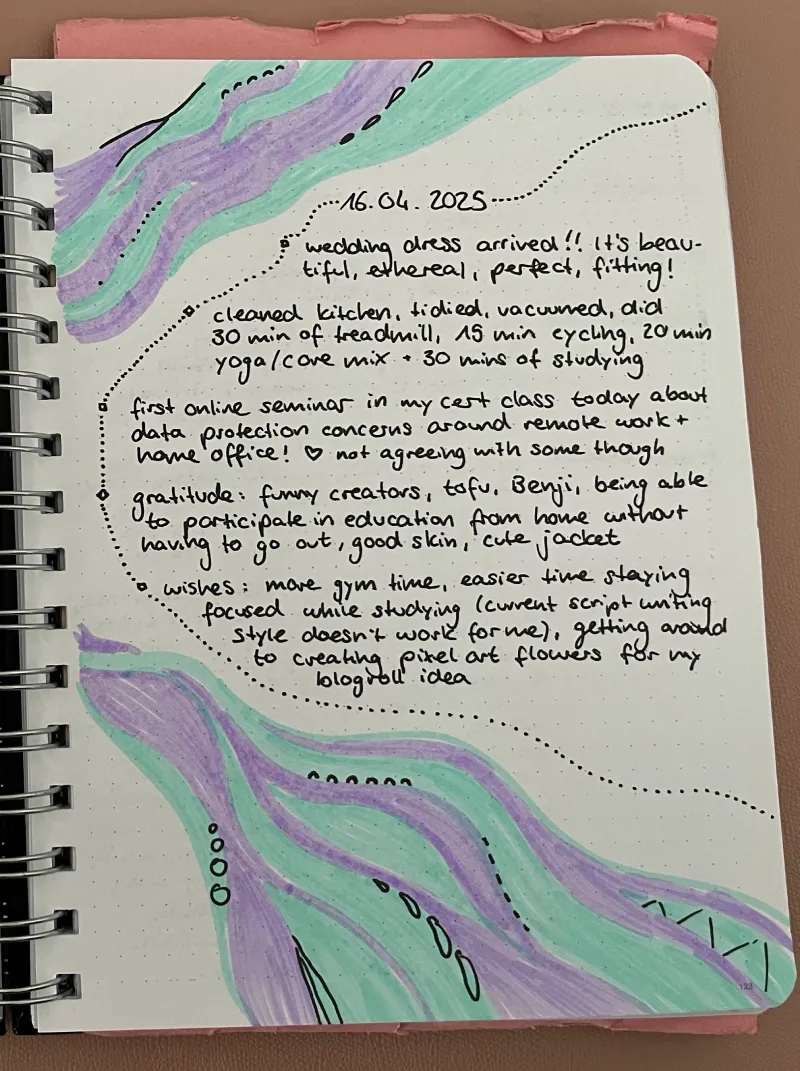 16.04.2025
wedding dress arrived!! It's beau-
tiful, ethereal, perfect, fitting!
cleaned kitchen, tidied, vacuumed, did
30 min of treadmill, 15 min cycling, 20 min
yoga/core mix + 30 mins of studying
first online seminar in my cert class today about
data protection concerns around remote work +
home office! ♡ not agreeing with some though
gratitude: funny creators, tofu, Benji, being able
to participate in education from home without
having to go out, good skin, cute jacket
wishes: more gym time, easier time staying
focused while studying (current script writing
style doesn't work for me), getting around
to creating pixel art flowers for my
blogroll idea
123